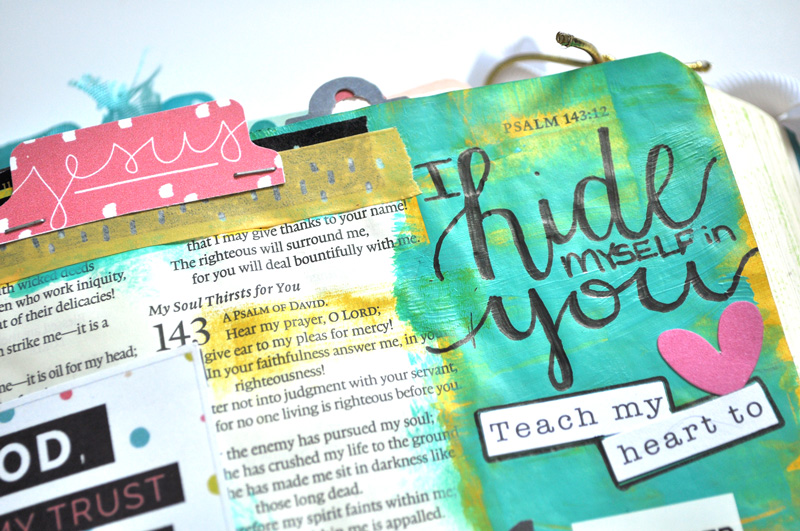 jesus
that I may give thanks to your name!
The righteous will surround me,
for you will deal bountifully with me.
with wicked deeds
en who work iniquity,
t of their delicacies!
n strike me—it is a
me—it is oil for my head;
My Soul Thirsts for You
143 A PSALM OF DAVID.
Hear my prayer, O LORD;
give ear to my pleas for mercy!
In your faithfulness answer me, in your
righteousness!
ter not into judgment with your servant,
for no one living is righteous before you.
the enemy has pursued my soul;
he has crushed my life to the ground
he has made me sit in darkness like
those long dead.
efore my spirit faints within me;
in me is appalled.
OD,
MY TRUST
PSALM 143:12
I hide
MYSELF in
you
Teach my
heart to